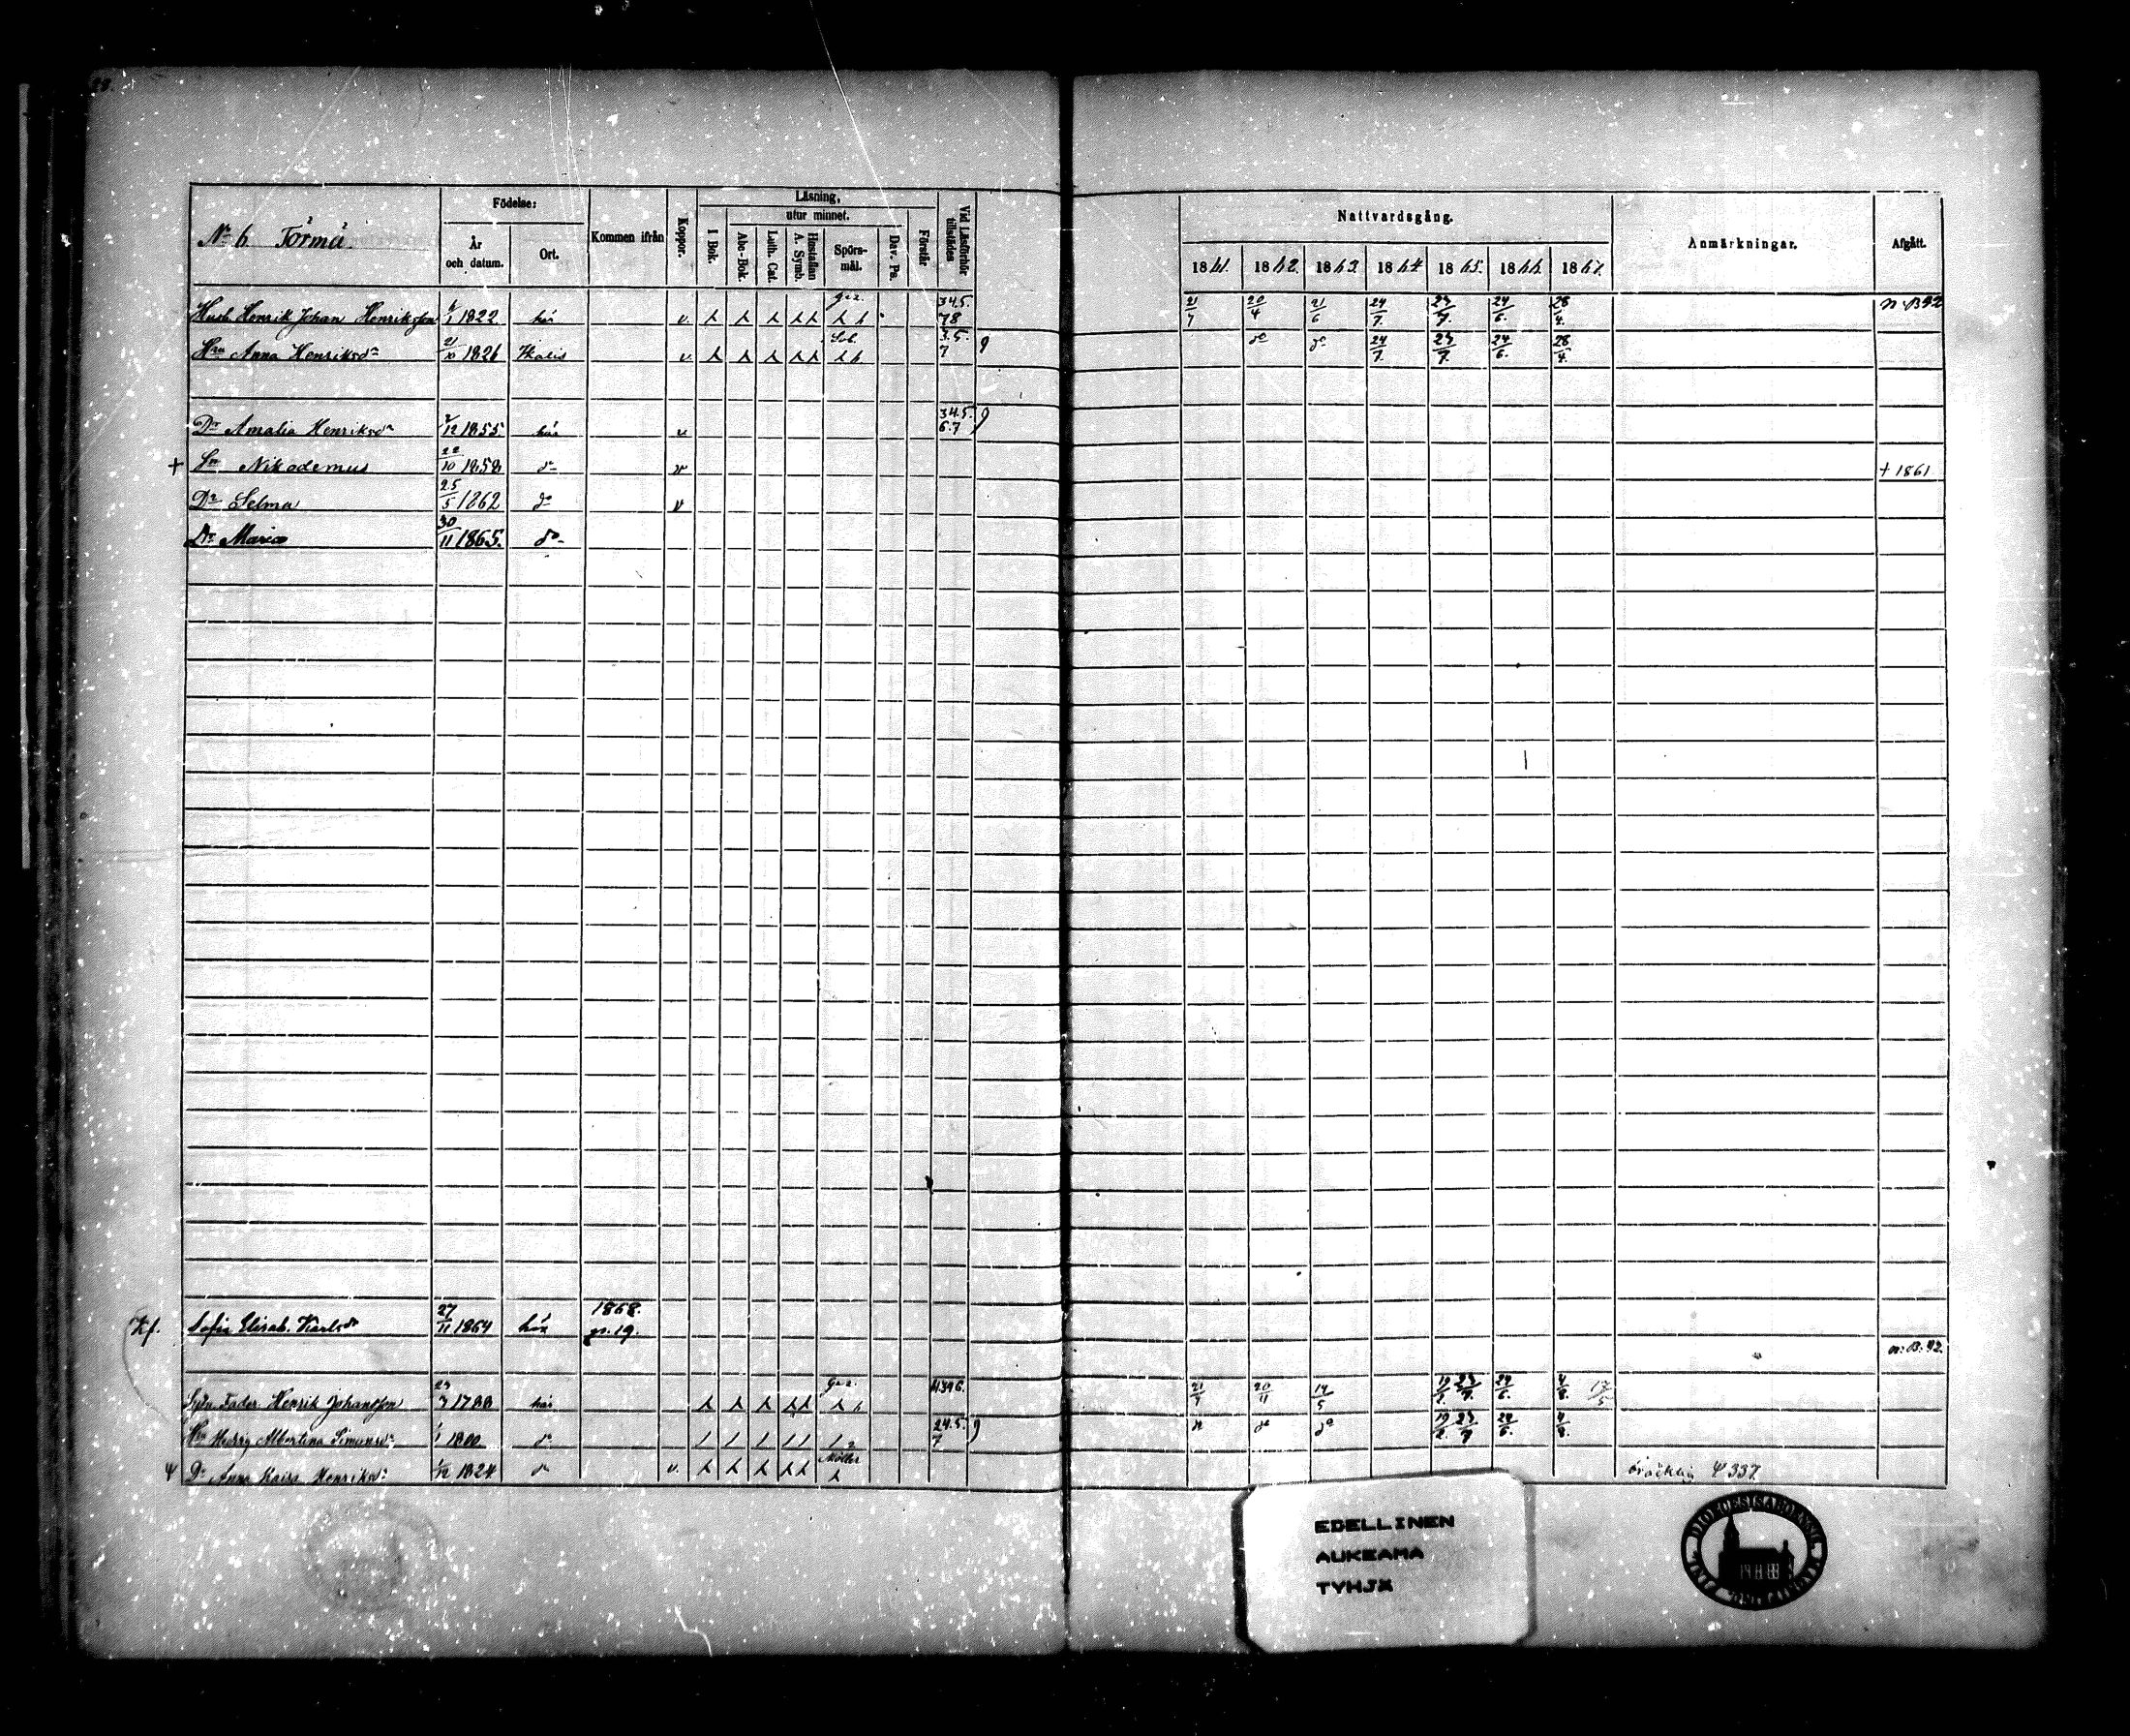 28.
Nr 6 Törmä.
Födelse:
År och datum.
Ort.
Kommen ifrån
Koppor.
Läsning,
I Bok.
utur minnet.
Abc-Bok.
Luth. Cat.
Hustaflan A. Symb.
Spörs-mål.
Dav. Ps.
Förstår
Vid Läsförhör tillstädes
Nattvardsgång.
1861. 1862. 1863. 1864. 1865. 1866. 1867.
Anmärkningar.
Afgått.
Husb. Henrik Johan Henriksson 1822 här v. 345. 78 21/7 20/4 21/6 24/7. 23/7. 24/6. 28/4. n. B 92
Hru Anna Henriksdr 21/10 1826 Ikalis v 3.5. 7 do do 24/7. 23/7. 24/6. 28/4.
Dr Amalia Henriksdr 2/12 1855. här v 345. 6.7
+ Sn Nikodemus 22/10 1858 do v + 1861
Dr Selma 25/5 1862 do v
Dr Maria 30/11 1865. do
Sofia Elisab. Karlsdr 27/11 1864 här 1868. p. 19.
n: B: 92.
Fader Henrik Johansson 1788 här 21/7 20/11 14/5 19/2. 23/7. 24/6. 4/8. 17/5
Hru Hedvig Albertina Simonsdr 1/1 1800 do 24.5. 7 do do 19/2. 23/7 24/6. 4/8.
Dr Anna Kaisa Henriksdr 1/12 1824 do v. Möller bräcklig Ψ 337.
EDELLINEN
AUKEAMA
TYHJÄ